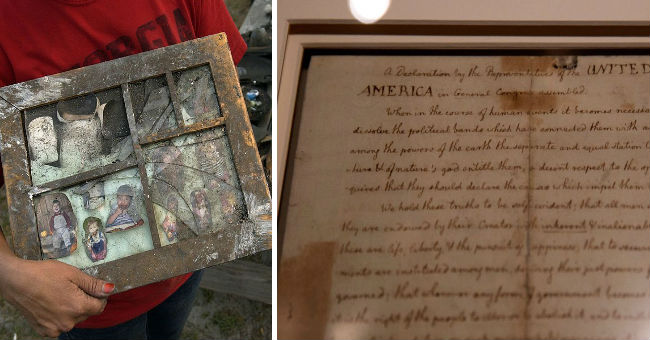 ORGIA
A Declaration by the Representatives of the UNITED
AMERICA in General Congress assembled.
When in the course of human events it becomes necessa
dissolve the political bands which have connected them with
among the powers of the earth the separate and equal station
& of nature's god entitle them, a decent respect to the
quires that they should declare the causes which impel them
We hold these truths to be evident; that all men
they are endowed by their Creator with inherent & inalienabl
these are life, liberty, & the pursuit of happiness; that to secure
ments are instituted among men, deriving their just powers
governed; that whenever any form of government becomes
it is the right of the people to alter or abolish it and to